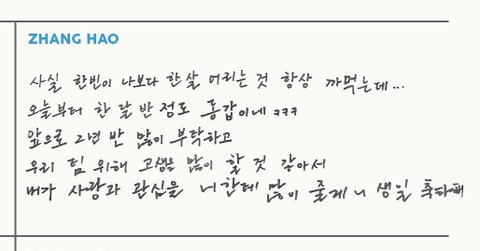 ZHANG HAO
사실 한빈이 나보다 한 살 어리는 것 항상 까먹는데...
오늘부터 한 달 반 정도 동갑이네 ㅋㅋㅋ
앞으로 2년 반 많이 부탁하고
우리 팀 위해 고생을 많이 할 것 같아서
내가 사랑과 관심을 너한테 많이 줄게~ 생일 축하해